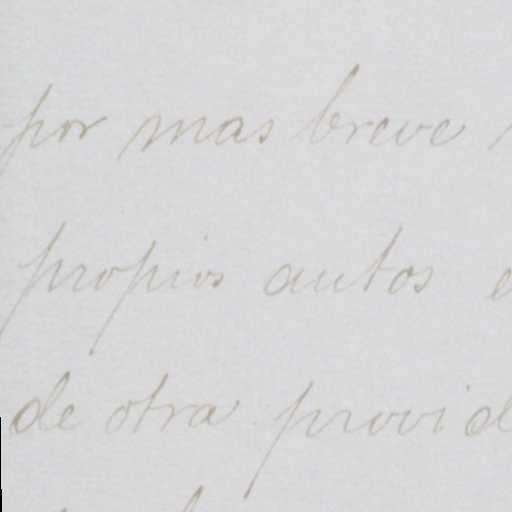 por mas breve
propios autos
de otra provid